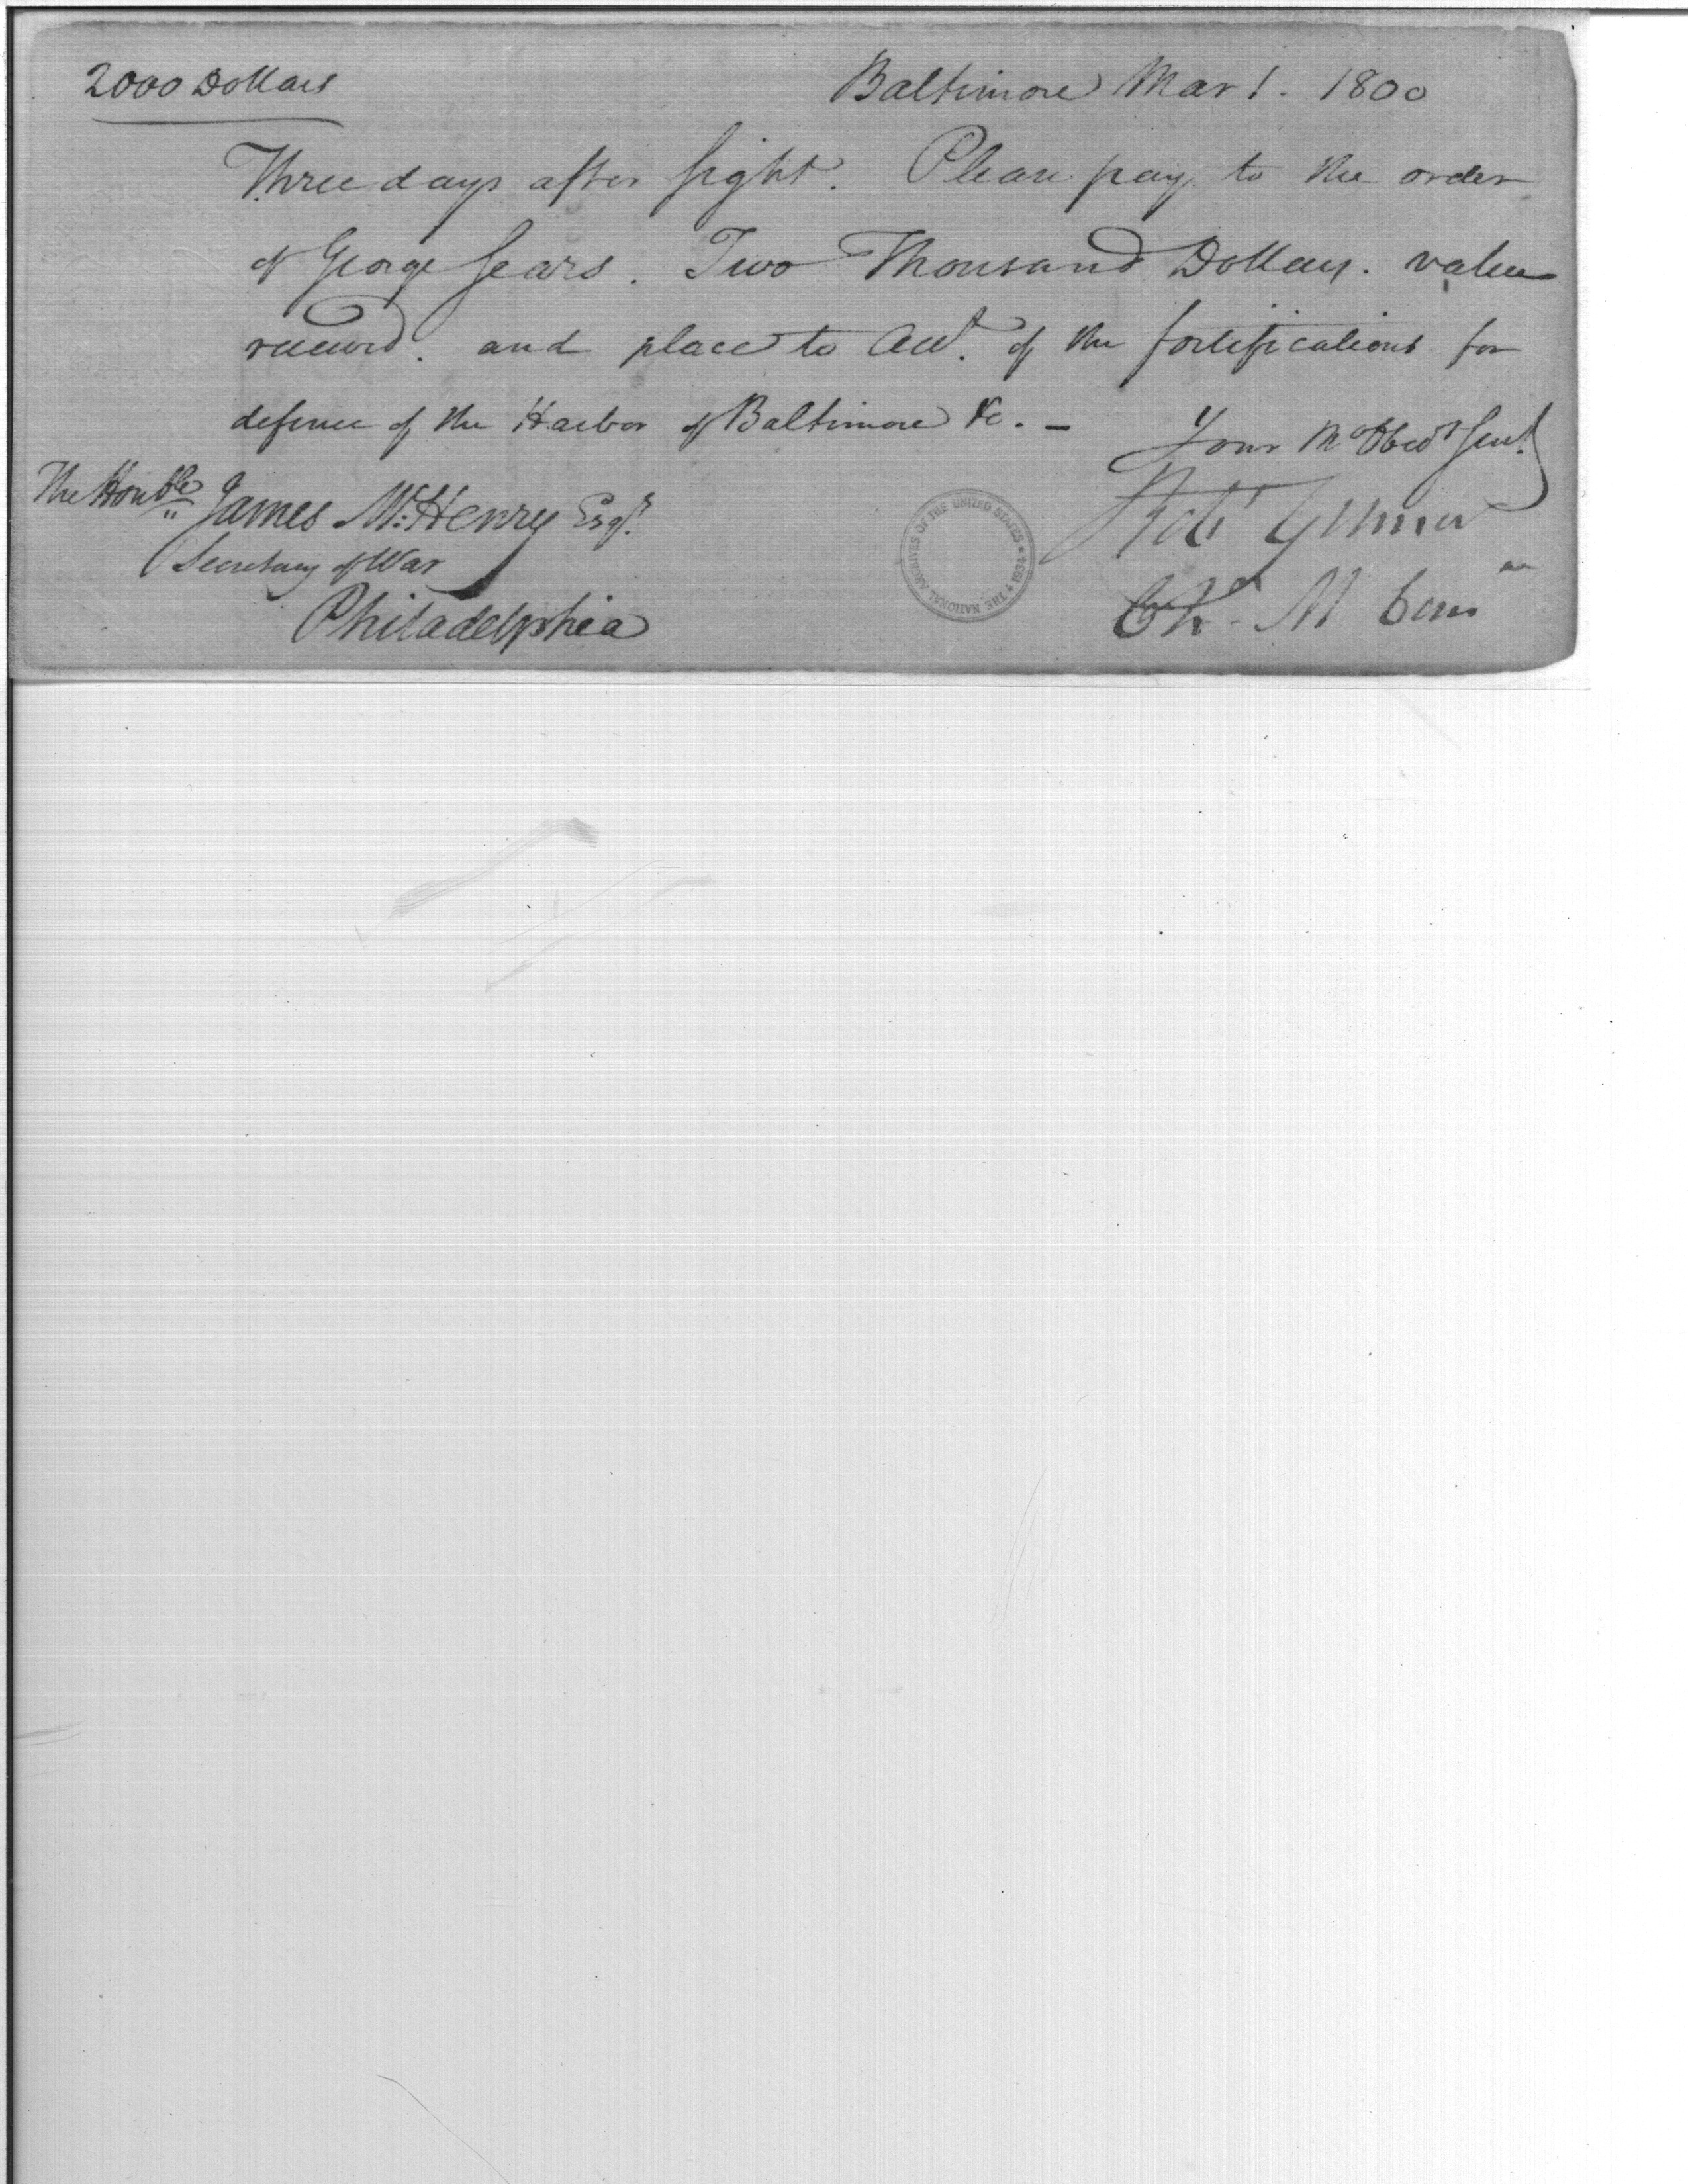 2000 Dollars
Baltimore Mar 1. 1800
Three days after sight. Please pay to the order
of George Sears. Two Thousand Dollars. value
received. and place to Acct. of the fortifications for
defence of the Harbor of Baltimore &c. -
Your Mo Obedt Servt.
The Honble James McHenry Esqr.
Secretary of War
Philadelphia
Robt Gilmor
Ch
THE NATIONAL ARCHIVES OF THE UNITED STATES * 1934 *